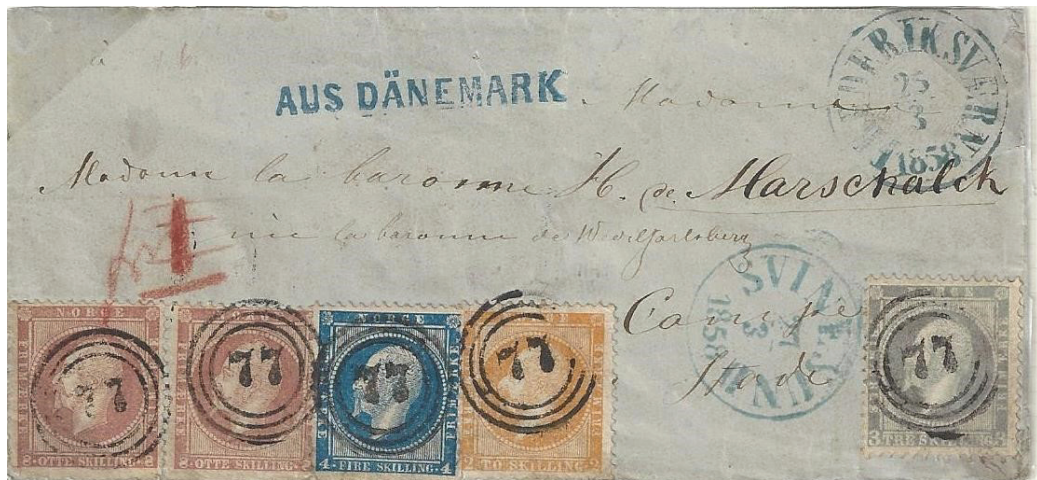 AUS DÄNEMARK
25
3
1858
Madame la baronne H. de Marschalck
née la baronne de Wedel Jarlsberg
SVINESUND
27
3
1858
Stade
NORGE
FRIMÆRKE
8 OTTE SKILLING 8
77
NORGE
FRIMÆRKE
8 OTTE SKILLING 8
77
NORGE
FRIMÆRKE
4 FIRE SKILLING 4
77
2 TO SKILLING 2
77
3 TRE SKILLING 3
77